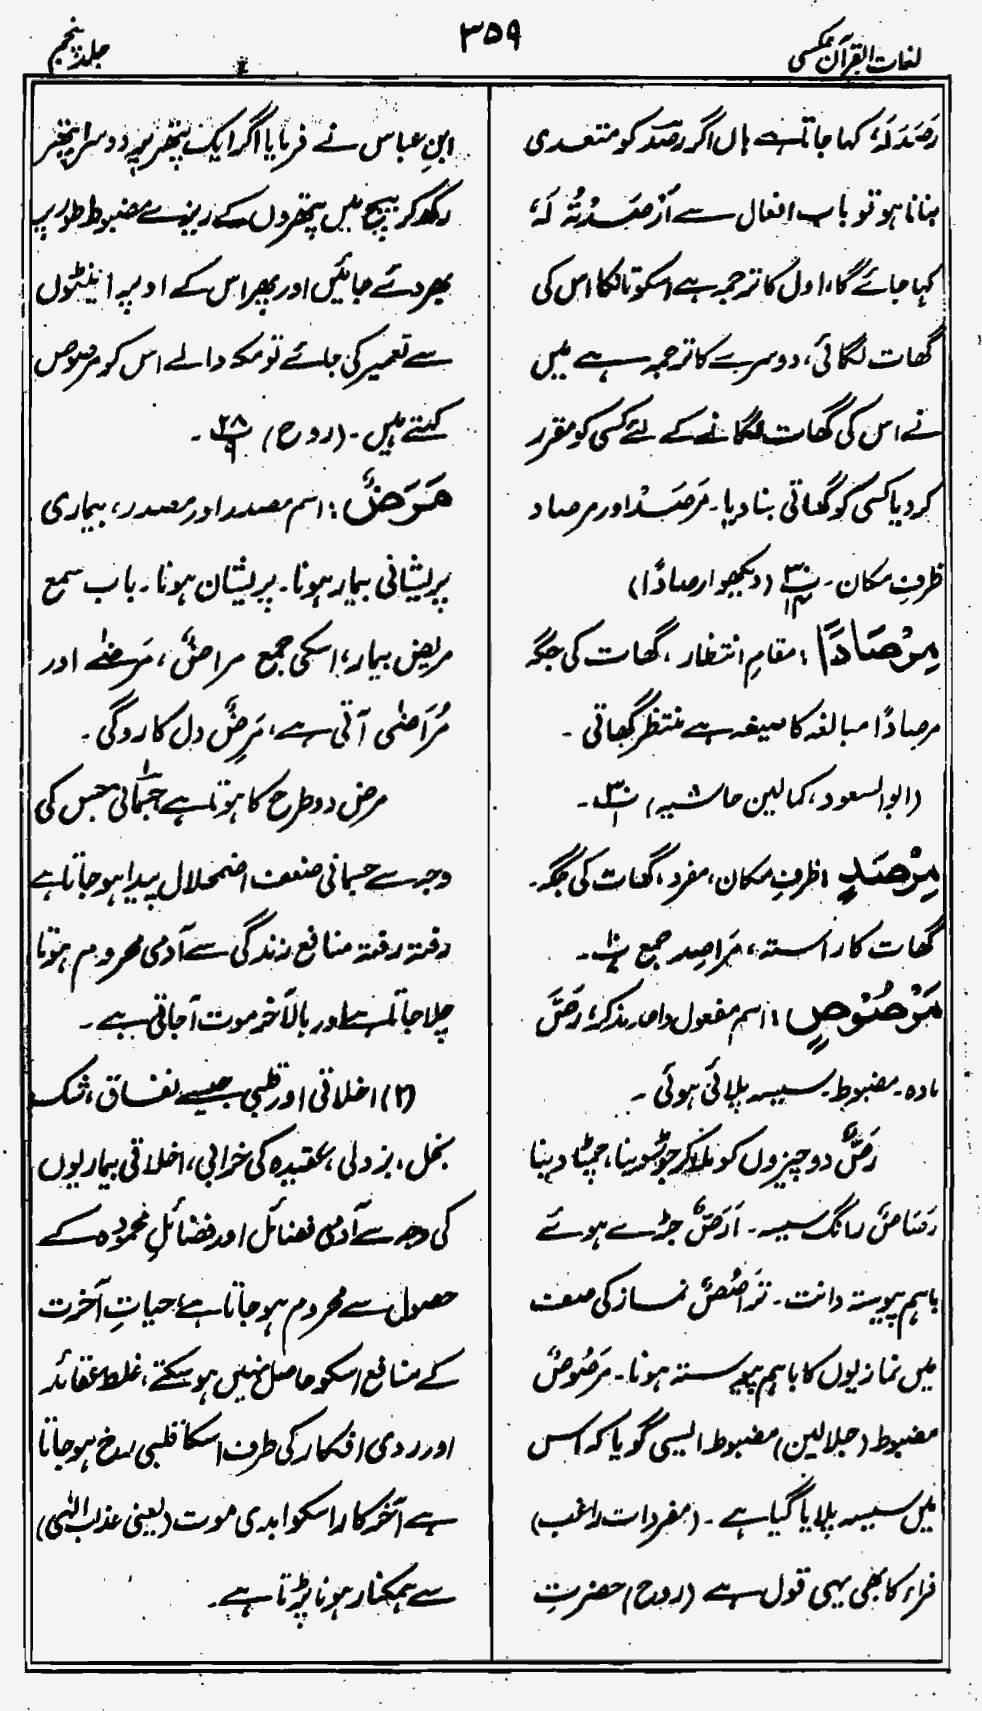 لغات القرآن عکسی
۳۵۹
جلد پنجم
رَصَدَ لَہٗ، کہا جاتا ہے ہاں اگر رصَد کو متعدی
بنانا ہو تو باب افعال سے اَرْصَدْتُہٗ لَہٗ
کہا جائے گا، اول کا ترجمہ ہے اسکو تاکا اس کی
گھات لگائی، دوسرے کا ترجمہ ہے میں
نے اس کی گھات لگانے کے لئے کسی کو مقرر
کردیا کسی کو گھاتی بنا دیا۔ مَرْصَدْ اور مرصاد
ظرفِ مکان۔ (دیکھو ارصادًا)
مِرْصَادًا: مقامِ انتظار، گھات کی جگہ
مرصادًا مبالغہ کا صیغہ ہے منتظر گھاتی۔
(ابوالسعود، کمالین حاشیہ) ۳۰/۱۔
مِرْصَدٍ: ظرفِ مکان، مفرد، گھات کی جگہ۔
گھات کا راستہ، مَرَاصِد جمع ۱۰/۷۔
مَرْصُوْصٍ: اسم مفعول واحد مذکر، رَصَّ
مادہ۔ مضبوط۔ سیسہ پلائی ہوئی۔
رَصٌّ دو چیزوں کو ملا کر جوڑ دینا، چمٹا دینا
رَصَاصٌ رانگ سیسہ۔ اَرَصُّ جڑے ہوئے
باہم پیوستہ دانت۔ تَرَاصُصٌ نماز کی صف
میں نمازیوں کا باہم پیوستہ ہونا۔ مَرصُوصٌ
مضبوط (جلالین) مضبوط ایسی گویا کہ اس
میں سیسہ پلایا گیا ہے۔ (مفردات راغب)
فراء کا بھی یہی قول ہے (روح) حضرتِ
ابنِ عباس نے فرمایا اگر ایک پتھر پر دوسرا پتھر
رکھ کر بیچ میں پتھروں کے ریزے مضبوط طور پر
بھر دئے جائیں اور پھر اس کے اوپر اینٹوں
سے تعمیر کی جائے تو مکہ والے اس کو مرصوص
کہتے ہیں۔ (روح) ۲۸/۹۔
مَرَضٌ: اسم مصدر اور مصدر، بیماری
پریشانی بیمار ہونا۔ پریشان ہونا۔ باب سمع
مریض بیمار، اسکی جمع مراضٌ، مَرضیٰ اور
مُرَاضٰی آتی ہے، مَرِضٌ دل کا روگی۔
مرض دو طرح کا ہوتا ہے ۱ جسمانی جس کی
وجہ سے جسمانی ضعف اضمحلال پیدا ہو جاتا ہے
رفتہ رفتہ منافع زندگی سے آدمی محروم ہوتا
چلا جاتا ہے اور بالآخر موت آجاتی ہے۔
(۲) اخلاقی اور قلبی جیسے نفاق، شک
بخل، بزدلی، عقیدہ کی خرابی، اخلاقی بیماریوں
کی وجہ سے آدمی فضائل اور فضائلِ محمودہ کے
حصول سے محروم ہو جاتا ہے، حیاتِ آخرت
کے منافع اسکو حاصل نہیں ہو سکتے، غلط عقائد
اور ردی افکار کی طرف اسکا قلبی رخ ہو جاتا
ہے آخرکار اسکو ابدی موت (یعنی عذاب الٰہی)
سے ہمکنار ہونا پڑتا ہے۔